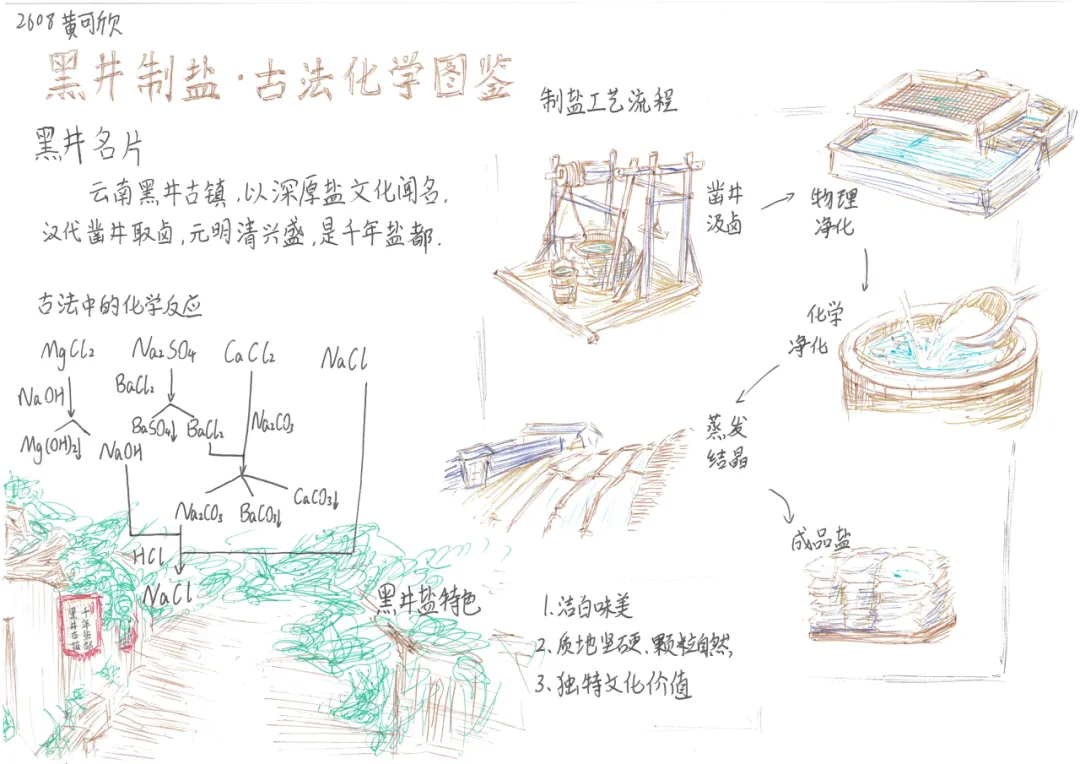 2608黄可欣
黑井制盐·古法化学图鉴
黑井名片
云南黑井古镇,以深厚盐文化闻名.
汉代凿井取卤,元明清兴盛,是千年盐都.
古法中的化学反应
MgCl2 Na2SO4 CaCl2 NaCl
NaOH
BaCl2
BaSO4↓ BaCl2
Na2CO3
Mg(OH)2↓ NaOH
Na2CO3 BaCO3↓ CaCO3↓
HCl
NaCl
千年盐都
黑井古镇
制盐工艺流程
凿井
汲卤
物理
净化
化学
净化
蒸发
结晶
成品盐
黑井盐特色
1.洁白味美
2.质地坚硬、颗粒自然
3.独特文化价值